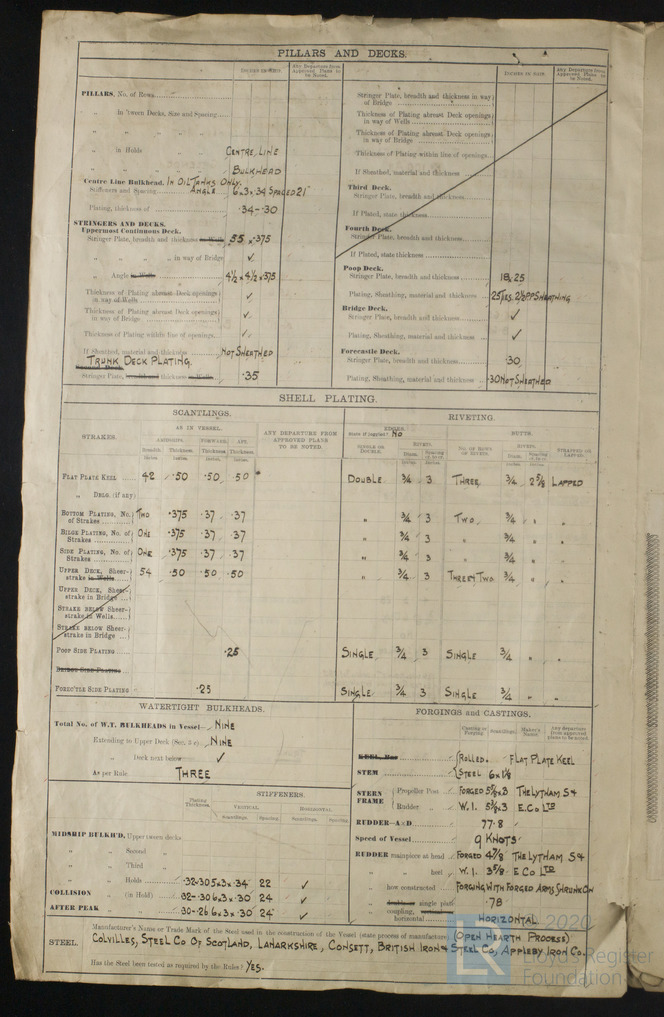 PILLARS AND DECKS.
INCHES IN SHIP.
Any Departure from Approved Plans to be Noted.
PILLARS, No. of Rows
„ in 'tween Decks, Size and Spacing
„ in Holds CENTRE LINE
BULKHEAD
Centre Line Bulkhead. IN OIL TANKS ONLY.
Stiffeners and Spacing ANGLE 6 x 3 x .34 SPACED 21"
Plating, thickness of .34-.30
STRINGERS AND DECKS.
Uppermost Continuous Deck.
Stringer Plate, breadth and thickness in Wells 55 x .375
„ „ in way of Bridge ✓
„ Angle in Wells 4½ x 4½ x .375
Thickness of Plating abreast Deck openings in way of Wells ✓
Thickness of Plating abreast Deck openings in way of Bridge ✓
Thickness of Plating within line of openings ✓
If Sheathed, material and thickness NOT SHEATHED
TRUNK DECK PLATING.
Second Deck
Stringer Plate, breadth and thickness in Wells .35
INCHES IN SHIP.
Any Departure from Approved Plans to be Noted.
Stringer Plate, breadth and thickness in way of Bridge
Thickness of Plating abreast Deck openings in way of Wells
Thickness of Plating abreast Deck openings in way of Bridge
Thickness of Plating within line of openings
If Sheathed, material and thickness
Third Deck.
Stringer Plate, breadth and thickness
If Plated, state thickness
Fourth Deck.
Stringer Plate, breadth and thickness
If Plated, state thickness
Poop Deck.
Stringer Plate, breadth and thickness
Plating, Sheathing, material and thickness
Bridge Deck.
Stringer Plate, breadth and thickness ✓
Plating, Sheathing, material and thickness ✓
Forecastle Deck.
Stringer Plate, breadth and thickness .30
Plating, Sheathing, material and thickness .30 NOT SHEATHED
SHELL PLATING.
SCANTLINGS.
RIVETING.
STRAKES.
AS IN VESSEL.
ANY DEPARTURE FROM APPROVED PLANS TO BE NOTED.
EDGES. NO
BUTTS.
AMIDSHIPS. FORWARD. AFT.
Breadth Thickness Thickness Thickness
SINGLE OR DOUBLE. RIVETS. NO. OF ROWS OF RIVETS. RIVETS. STRAPPED OR LAPPED.
FLAT PLATE KEEL 42 .50 .50 .50 DOUBLE ¾ 3 THREE ¾ 2⅝ LAPPED
„ DBLG. (if any)
BOTTOM PLATING, No. of Strakes TWO .375 .37 .37 „ ¾ 3 TWO ¾ „ „
BILGE PLATING, No. of Strakes ONE .375 .37 .37 „ ¾ 3 „ ¾ „ „
SIDE PLATING, No. of Strakes ONE .375 .37 .37 „ ¾ 3 „ ¾ „ „
UPPER DECK, Sheerstrake in Wells 54 .50 .50 .50 „ ¾ 3 THREE & TWO ¾ „ „
UPPER DECK, Sheerstrake in Bridge
STRAKE BELOW Sheerstrake in Wells
STRAKE BELOW Sheerstrake in Bridge
POOP SIDE PLATING .25 SINGLE ¾ 3 SINGLE ¾ „ „
BRIDGE SIDE PLATING
FORE'CTLE SIDE PLATING .25 SINGLE ¾ 3 SINGLE ¾ „ „
WATERTIGHT BULKHEADS.
Total No. of W.T. BULKHEADS in Vessel— NINE
Extending to Upper Deck NINE
„ Deck next below ✓
As per Rule THREE
Plating Thickness.
STIFFENERS.
VERTICAL. HORIZONTAL.
Scantlings. Spacing. Scantlings. Spacing.
MIDSHIP BULKH'D, Upper tween decks
„ „ Second „
„ „ Third „
„ „ Holds .32-.30 5 x 3 x .34 22 ✓
COLLISION „ (in Hold) .32-.30 6 x 3 x .30 24 ✓
AFTER PEAK „ .30-.26 6 x 3 x .30 24 ✓
FORGINGS and CASTINGS.
Casting or Forging. Scantlings. Maker's Name. Any departure from approved plans to be noted.
KEEL, Bar
STEM ROLLED. FLAT PLATE KEEL
STEEL 6 x 1⅛
STERN FRAME Propeller Post FORGED THE LYTHAM S&
Rudder „ W.I. E. CO LTD
RUDDER—A×D 77.8
Speed of Vessel 9 KNOTS
RUDDER mainpiece at head FORGED 4⅞ THE LYTHAM S&
„ „ heel W.I. 3⅝ E CO LTD
„ how constructed FORGING WITH FORGED ARMS SHRUNK ON
„ double or single plate .78
„ coupling, horizontal HORIZONTAL
STEEL. Manufacturer's Name or Trade Mark of the Steel used in the construction of the Vessel (state process of manufacture). (OPEN HEARTH PROCESS)
COLVILLES, STEEL CO OF SCOTLAND, LANARKSHIRE, CONSETT, BRITISH IRON & STEEL CO, APPLEBY IRON CO.
Has the Steel been tested as required by the Rules? YES.
© 2020
Lloyd's Register
Foundation